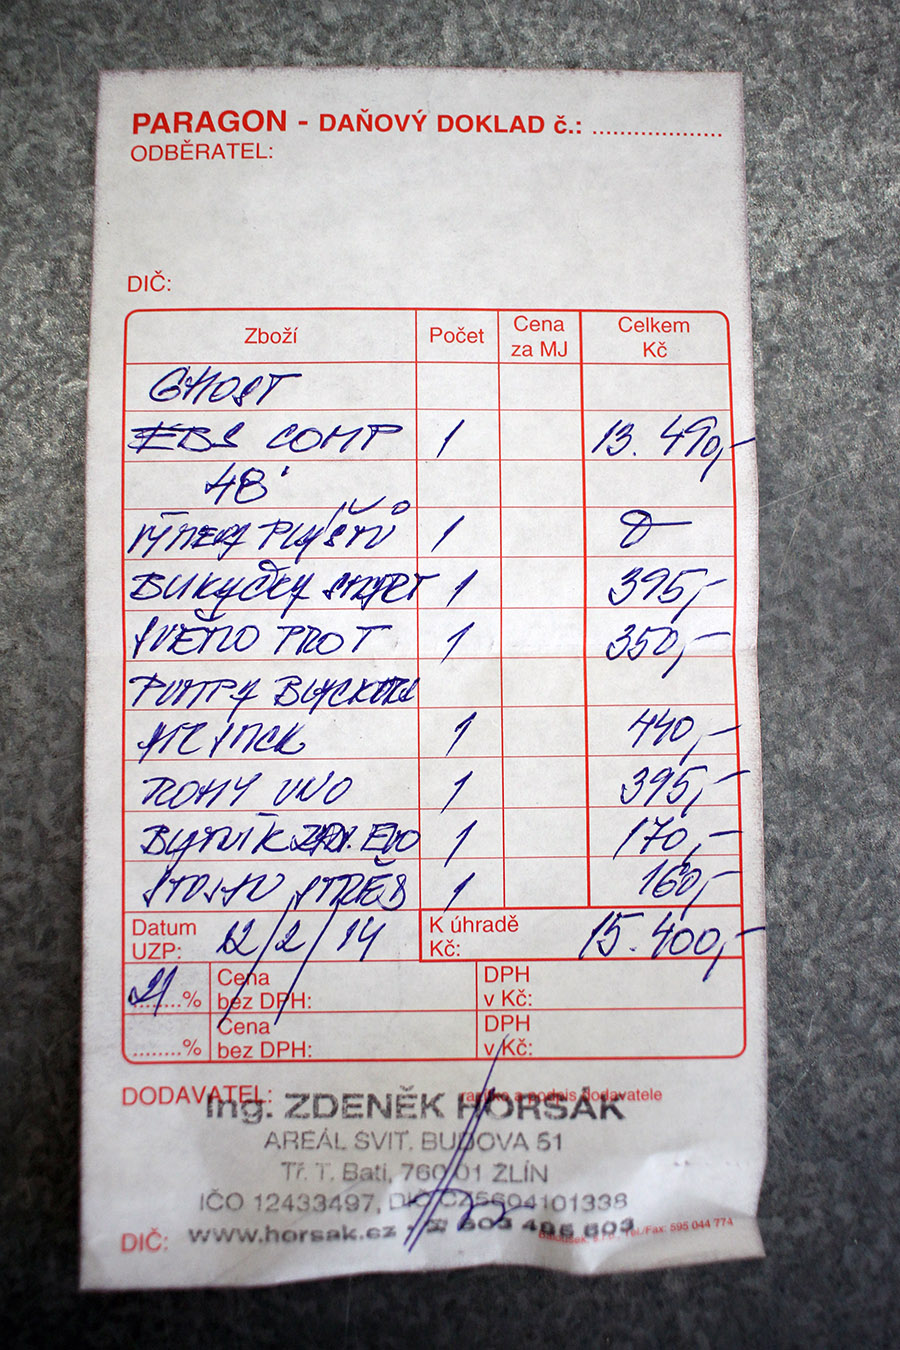 PARAGON - DAŇOVÝ DOKLAD č.: ....................
ODBĚRATEL:
DIČ:
Zboží Počet Cena za MJ Celkem Kč
GHOST
EBS COMP 1 13.490,-
48'
PLÁŠŤŮ 1 0
1 395,-
PROT 1 350,-
PUMPA
1 440,-
ROHY UNO 1 395,-
EVO 1 170,-
1 160,-
Datum UZP: 12/2/14 K úhradě Kč: 15.400,-
21 % Cena bez DPH: DPH v Kč:
........% Cena bez DPH: DPH v Kč:
DODAVATEL: razítko a podpis dodavatele
Ing. ZDENĚK HORSÁK
AREÁL SVIT, BUDOVA 51
Tř. T. Bati, 760 01 ZLÍN
IČO 12433497, DIČ CZ5604101338
DIČ: www.horsak.cz 603 486 603
Tel./Fax: 595 044 774